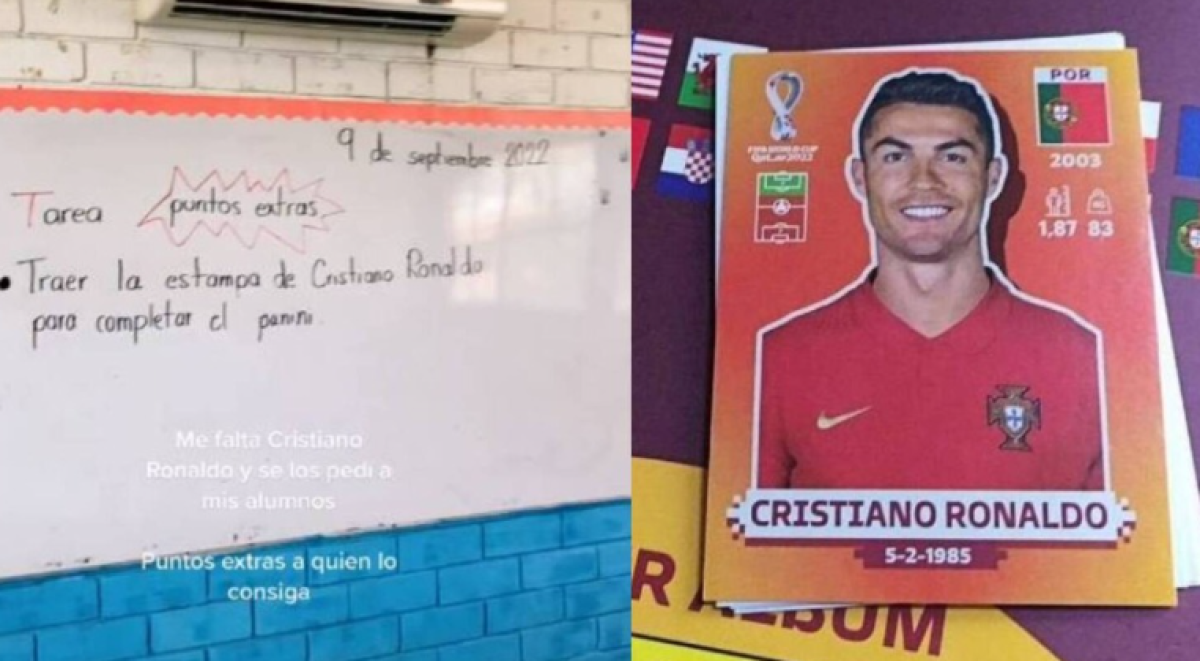 9 de septiembre 2022
Tarea puntos extras
• Traer la estampa de Cristiano Ronaldo
para completar el panini.
Me falta Cristiano
Ronaldo y se los pedi a
mis alumnos
Puntos extras a quien lo
consiga
FIFA WORLD CUP
Qatar2022
POR
2003
1,87 83
CRISTIANO RONALDO
5-2-1985
R ALBUM